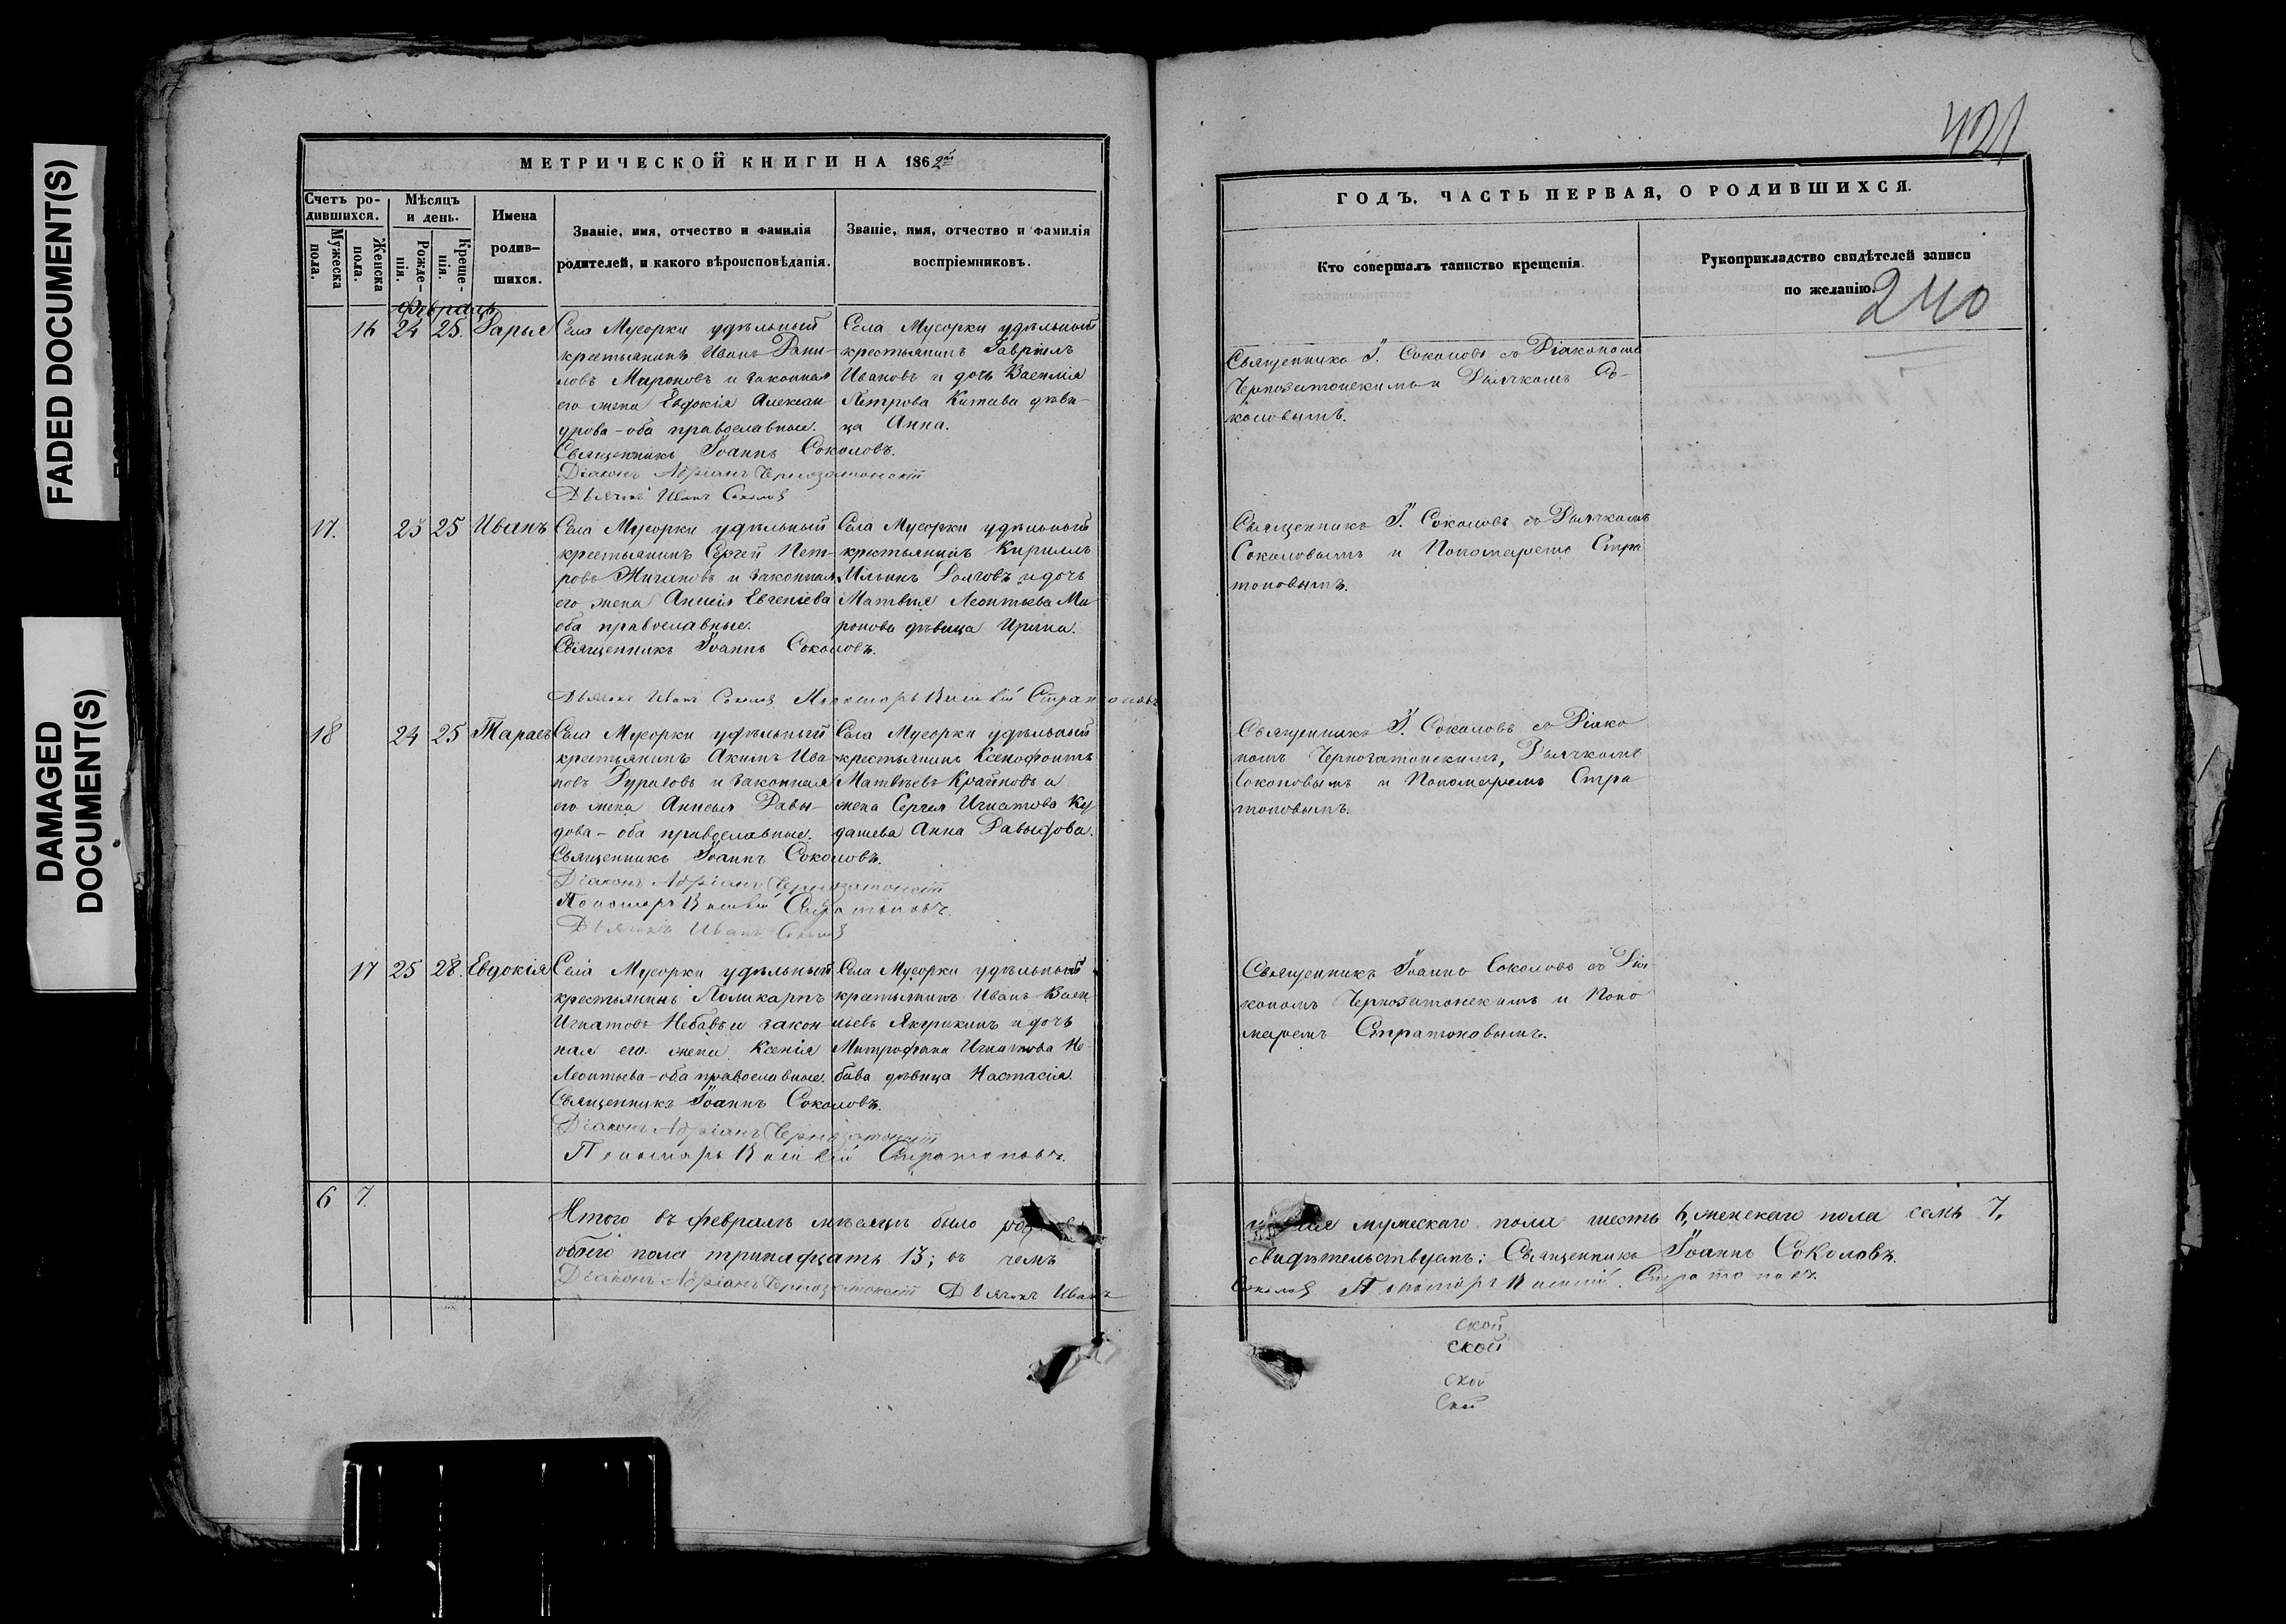 FADED DOCUMENT(S)
DAMAGED
DOCUMENT(S)
МЕТРИЧЕСКОЙ КНИГИ НА 1862й
Счетъ ро-
дившихся.
Мужеска
пола.
Женска
пола.
Мѣсяцъ
и день.
Рожде-
нія.
Креще-
нія.
Имена
родив-
шихся.
Званіе, имя, отчество и фамилія
родителей, и какого вѣроисповѣданія.
Званіе, имя, отчество и фамилія
воспріемниковъ.
Февраль
16 24 25. Дарья
Села Мусорки удѣльный
крестьянинъ Иванъ Дани-
ловъ Мироновъ и законная
его жена Евдокія Алексан-
дрова - оба православные.
Священникъ Іоаннъ Соколовъ.
Діаконъ Адріанъ Чернозатонскій
Дьячекъ Иванъ Соколов
Села Мусорки удѣльный
крестьянинъ Гавріилъ
Ивановъ и дочь Василія
Петрова Китаева дѣви-
ца Анна.
17. 23 25 Иванъ
Села Мусорки удѣльный
крестьянинъ Сергей Пет-
ровъ Жигановъ и законная
его жена Анисія Евгеніева
оба православные.
Священникъ Іоаннъ Соколовъ.
Дьячекъ Иванъ Соколов Пономарь Стратоновъ
Села Мусорки удѣльный
крестьянинъ Кириллъ
Ильинъ Долговъ и дочь
Матвея Леонтьева Ми
ронова дѣвица Ирина.
18 24 25 Тарасъ
Села Мусорки удѣльный
крестьянинъ Акимъ Ива
новъ и законная
его жена Анисья Давы-
дова - оба православные.
Священникъ Іоаннъ Соколовъ.
Діаконъ Адріанъ Чернозатонскій
Пономарь Стратоновъ.
Дьячекъ Иванъ Соколов
Села Мусорки удѣльный
крестьянинъ Ксенофонтъ
Матвѣевъ Крайновъ и
жена Сергея Игнатова Ку
дашева Анна Давыдова.
17 25 28. Евдокія
Села Мусорки удѣльный
крестьянинъ Поликарпъ
Игнатовъ Небавъ и закон-
ная его жена Ксенія
Леонтьева - оба православные.
Священникъ Іоаннъ Соколовъ.
Діаконъ Адріанъ Чернозатонскій
Пономарь Стратоновъ.
Села Мусорки удѣльный
крестьянинъ Иванъ Васи
льевъ и дочь
Митрофана Игнатова Не-
бава дѣвица Настасія.
6 7.
Итого въ февралѣ мѣсяцѣ было
обоего пола тринадцать 13; въ чемъ
Діаконъ Адріанъ Чернозатонскій Дьячекъ Иванъ
421
ГОДЪ. ЧАСТЬ ПЕРВАЯ, О РОДИВШИХСЯ.
Кто совершалъ таинство крещенія.
Рукоприкладство свидѣтелей записи
по желанію.
240
Священникъ І. Соколовъ съ Діакономъ
Чернозатонскимъ и Дьячкомъ Со-
коловымъ.
Священникъ І. Соколовъ съ Дьячкомъ
Соколовымъ и Пономаремъ Стра
тоновымъ.
Священникъ І. Соколовъ съ Діако
номъ Чернозатонскимъ, Дьячкомъ
Соколовымъ и Пономаремъ Стра
тоновымъ.
Священникъ Іоаннъ Соколовъ съ Діа
кономъ Чернозатонскимъ и Поно
маремъ Стратоновымъ.
мужескаго пола шесть 6, женскаго пола семь 7,
свидѣтельствуемъ: Священникъ Іоаннъ Соколовъ.
Соколов Пономарь Стратоновъ.
ской
ской
ской
ской